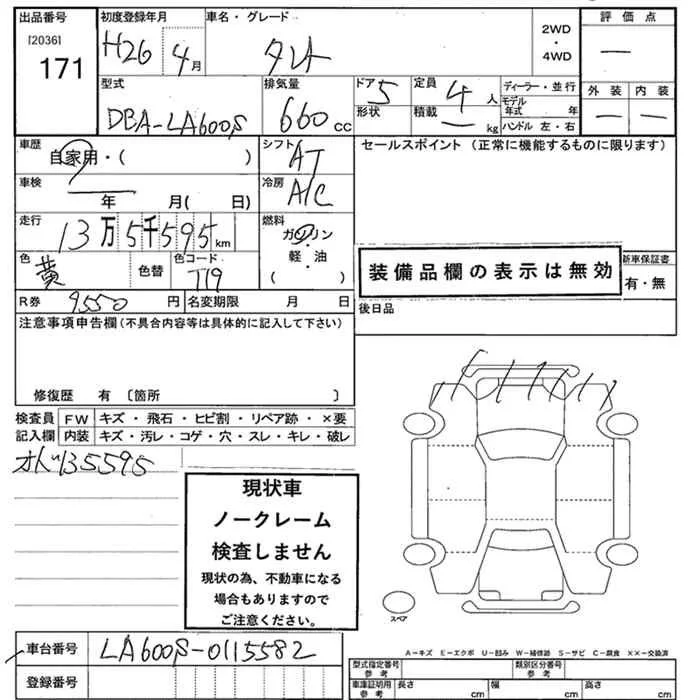 出品番号 初度登録年月 車名・グレード 評価点
[2036] H26 4月 タント 2WD ・ 4WD —
171
型式 排気量 ドア 5 定員 4人 ディーラー・並行 外装 内装
DBA-LA600S 660cc 形状 積載 — kg モデル年式 年 — —
ハンドル 左・右
車歴 自家用・( ) シフト AT セールスポイント(正常に機能するものに限ります)
車検 — 年 月( 日) 冷房 A/C
走行 13万5千595km 燃料 ガソリン・軽・油 ( )
色 黄 色替 色コード T19 装備品欄の表示は無効 新車保証書 有・無
R券 9,550円 名変期限 月 日 後日品
注意事項申告欄(不具合内容等は具体的に記入して下さい)
修復歴 有 〔箇所 〕
検査員 FW キズ・飛石・ヒビ割・リペア跡・×要
記入欄 内装 キズ・汚レ・コゲ・穴・スレ・キレ・破レ
135595
現状車
ノークレーム
検査しません
現状の為、不動車になる
場合もありますので
ご注意ください。
スペア
車台番号 LA600S-0115582
登録番号
A−キズ E−エクボ U−凹み W−補修跡 S−サビ C−腐食 ××−交換済
型式指定番号 参考 類別区分番号 参考
車庫証明用 参考 長さ cm 幅 cm 高さ cm